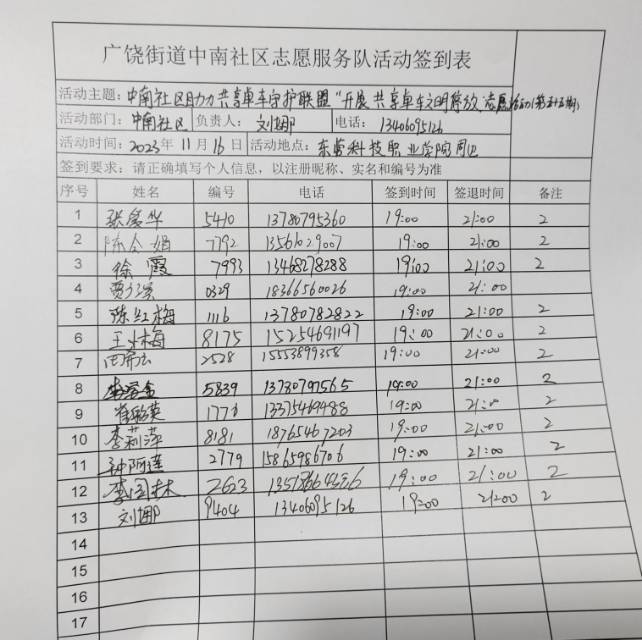 广饶街道中南社区志愿服务队活动签到表
活动主题：中南社区助力共享单车守护联盟“开展共享单车文明停放志愿活动(第五十五期)
活动部门：中南社区 负责人：刘娜 电话：13406095126
活动时间：2023年11月16日 活动地点：东营科技职业学院周边
签到要求：请正确填写个人信息，以注册昵称、实名和编号为准
序号 姓名 编号 电话 签到时间 签退时间 备注
1 张爱华 5410 13780795360 19:00 21:00 2
2 陈会娟 7792 13561029007 19:00 21:00 2
3 徐霞 7993 13468278288 19:00 21:00 2
4 0329 18366560026 19:00 21:00
5 陈红梅 1116 13780782822 19:00 21:00 2
6 王小梅 8175 15254691197 19:00 21:00 2
7 2528 15553899358 19:00 21:00 2
8 5839 13730797565 19:00 21:00 2
9 1778 13375469488 19:00 21:00 2
10 李莉萍 8181 18765467203 19:00 21:00 2
11 钟阿莲 2779 15865986706 19:00 21:00 2
12 李国林 2623 19:00 21:00 2
13 刘娜 9404 13406095126 19:00 21:00 2
14
15
16
17